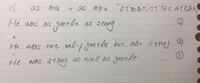 as 형/부 as 형/부
He was as gentle as strong. ①
He was not only gentle but also strong ②
He was strong as well as gentle. ③